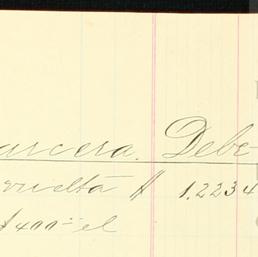 arcera. Debe
vuelta $ 1,2234
$400= el